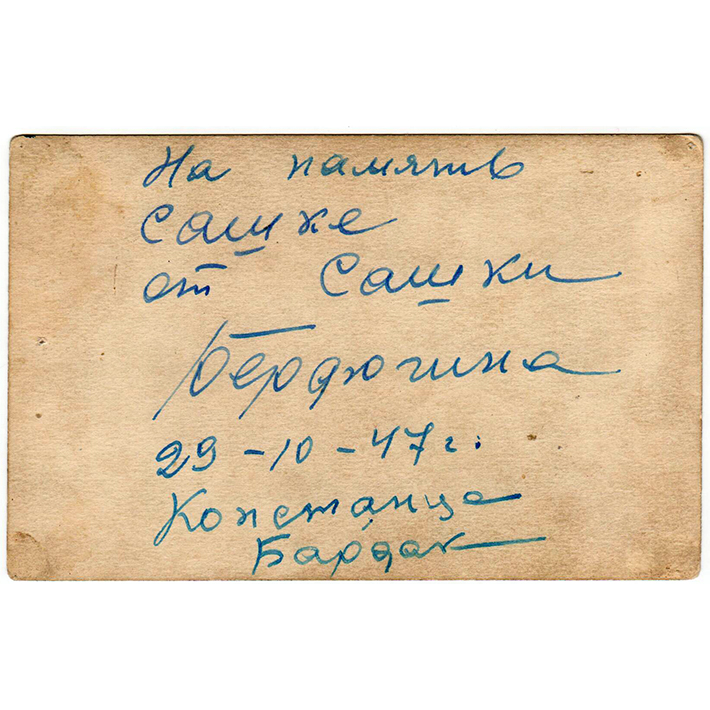 На память
Сашке
от Сашки
Бердюгина
29-10-47г.
Констанце
Бардак